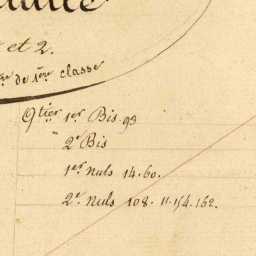 et 2.
de 1ère classe
9tier 1er Bis 93
" 2e Bis
1er nuls 14.60.
2e nuls 108. 11.154.162.